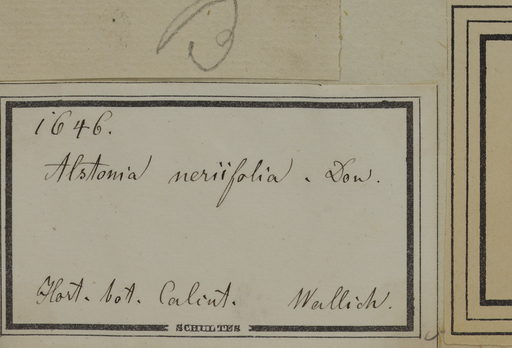 B
1646.
Alstonia neriifolia. Don.
Hort. bot. Calcut. Wallich.
SCHULTES